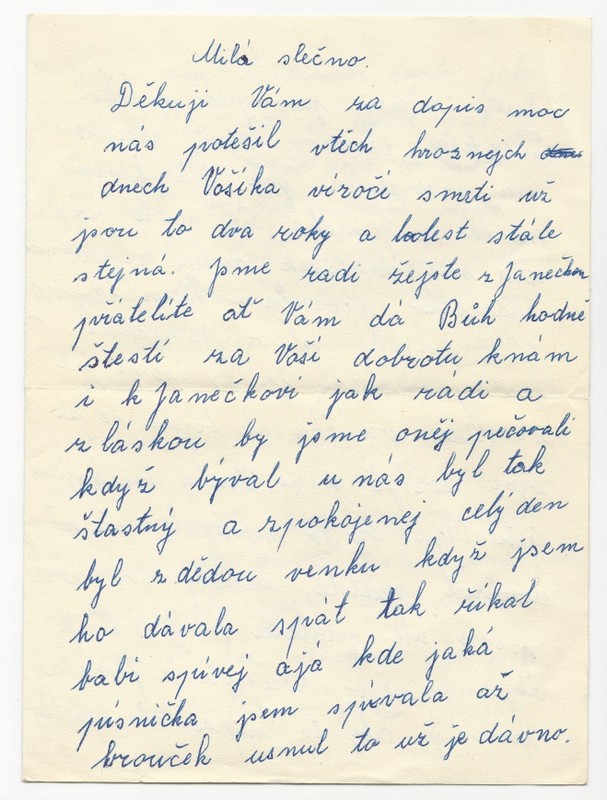 Milá slečno.
Děkuji Vám za dopis moc
nás potěšil vtěch hroznejch
dnech Vošíka víročí smrti už
jsou to dva roky a bolest stále
stejná. Jsme radi žejste z Janečkem
přátelíte ať Vám dá Bůh hodně
štestí za Vaší dobrotu knám
i k Janečkovi jak rádi a
z láskou by jsme oněj pečovali
když býval u nás byl tak
štastný a zpokojenej celý den
byl z dědou venku když jsem
ho dávala spát tak říkal
babi spívej ajá kde jaká
písnička jsem spívala až
brouček usnul to už je dávno.